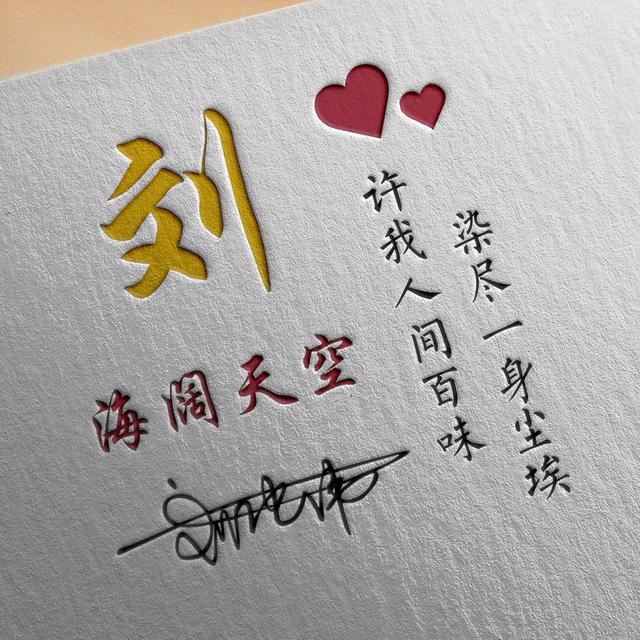 刘
海阔天空
许我人间百味
染尽一身尘埃